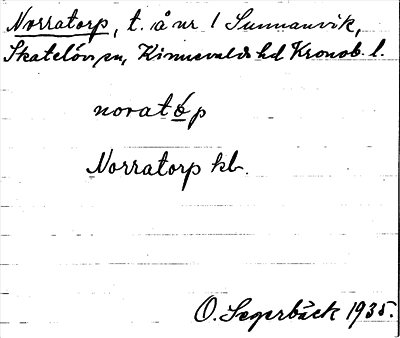 Norratorp, t. å nr 1 Sunnanvik,
Skatelövs sn, Kinnevalds hd Kronob. l.
noratóp
Norratorp kb.
O. Segerbäck 1935.